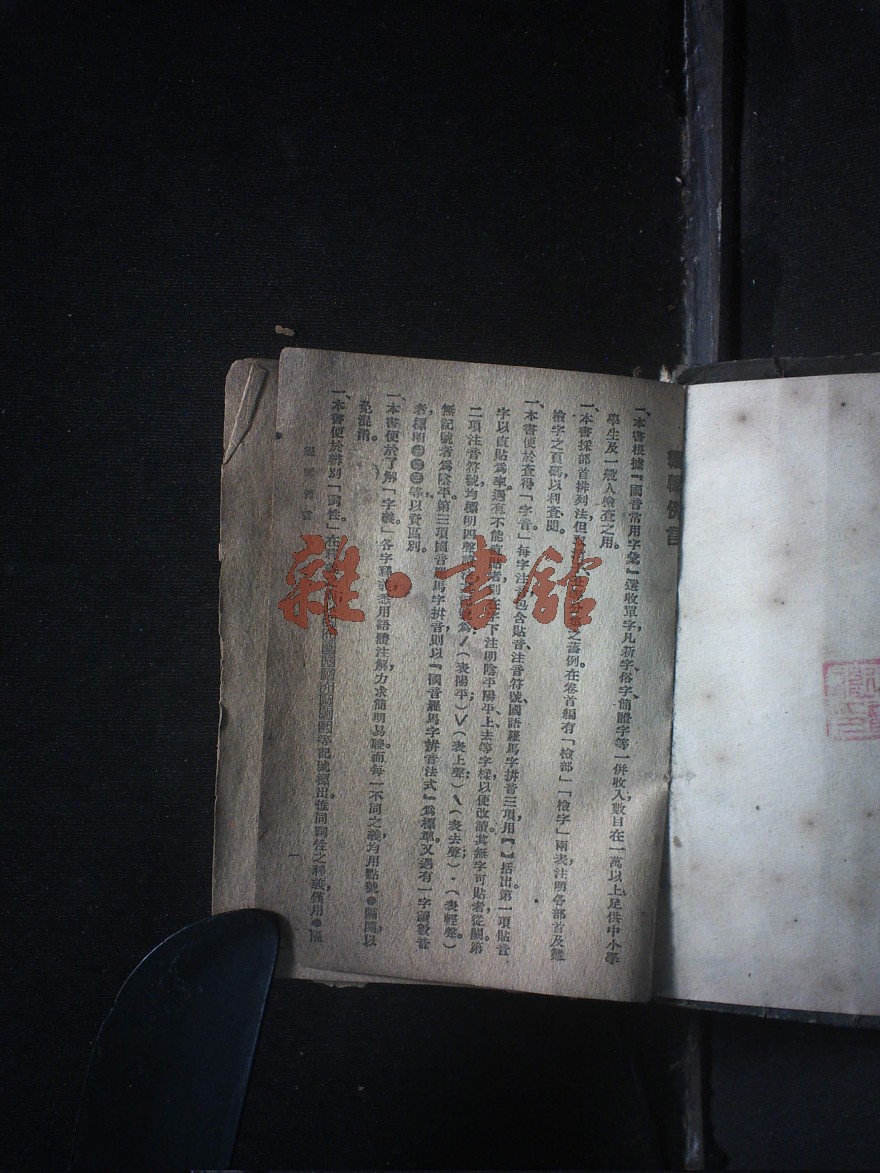 編輯例言
一、本書根據『國音常用字彙』選收單字,凡新字、俗字、簡體字等一併收入,數目在一萬以上,足供中小學
學生及一般人檢查之用。
一、本書採部首排列法,但 之舊例,在卷首編有「檢部」「檢字」兩表,注明各部首及難
檢字之頁碼,以利查閱。
一、本書便於查得「字音」每字注 包含貼音、注音符號、國語羅馬字拼音三項,用【】括出。第一項貼音,
字以直貼爲率。遇有不能直貼者,則在字下注明陰平陽平上去等字樣,以便改讀,其無字可貼者從闕。第
二項注音符號均標明四聲 爲ˊ(表陽平);ˇ(表上聲);ˋ(表去聲);·(表輕聲)
無記號者爲陰平。第三項國音羅馬字拼音則以『國音羅馬字拼音法式』爲標準。又遇有一字讀數音
者,標明㊀㊁㊂等以資區別。
一、本書便於了解「字義」各字釋義悉用語體注解,力求簡明易曉,而每一不同之義均用點號●隔開,以
免混淆。
一、本書便於辨別「詞性」在釋 等記號標出,惟同詞性之釋義,僅用●區
一
雜·書館